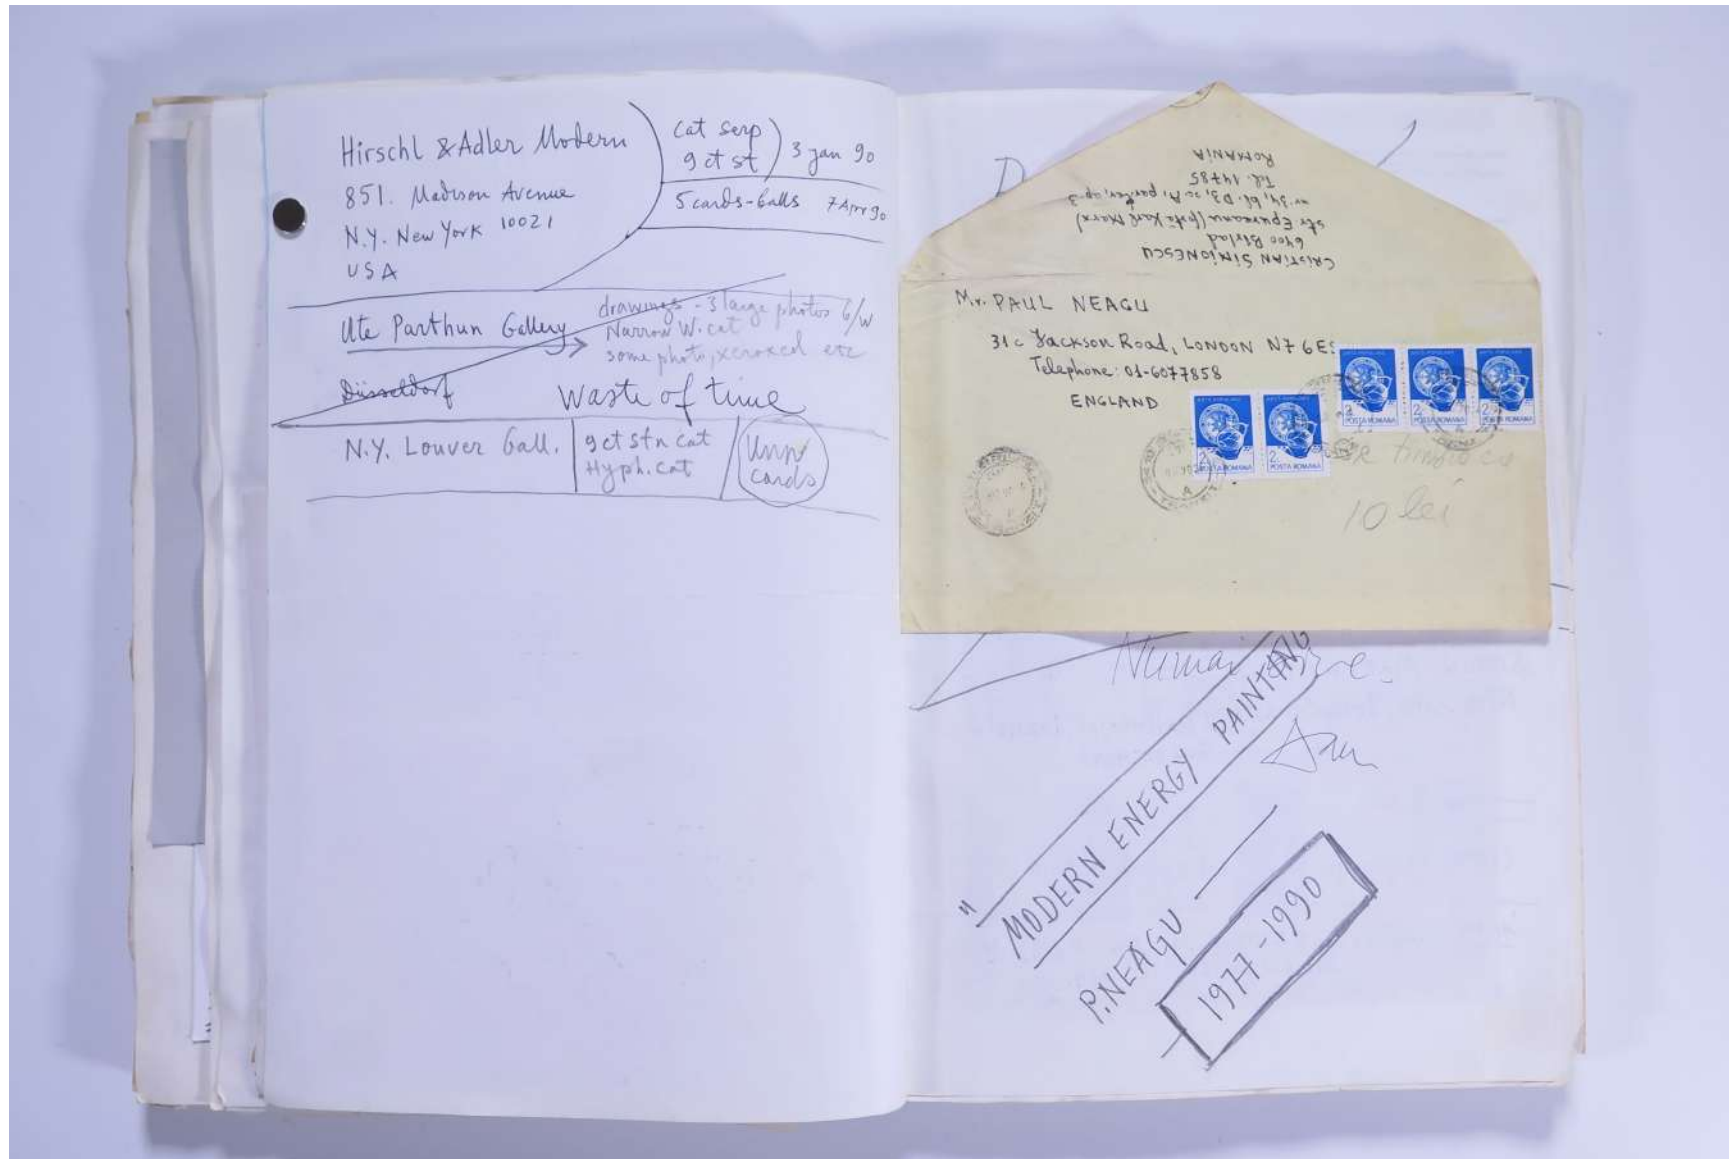 Hirschl & Adler Modern
851. Madison Avenue
N.Y. New York 10021
USA
cat serp
9 ct st
3 jan 90
5 cards-balls 7 Apr 90
Ute Parthun Gallery
Düsseldorf
drawings - 3 large photos b/w
Narrow W. cat
some photo, xeroxed etc
Waste of time
N.Y. Louver Gall.
9 ct stn cat
Hyph. cat
Unn
cards
CRISTIAN SIMIONESCU
6400 Bîrlad
str Epureanu (fostă Karl Marx)
nr. 34, bl. D3, sc A, parter, ap. 3
Tel. 14785
ROMANIA
Mr. PAUL NEAGU
31c Jackson Road, LONDON N7 6E
Telephone: 01-6077858
ENGLAND
2 POSTA ROMANA
2 POSTA ROMANA
2 POSTA ROMANA
2 POSTA ROMANA
2 POSTA ROMANA
10 lei
Numai
"MODERN ENERGY PAINTING
P. NEAGU
1977-1990